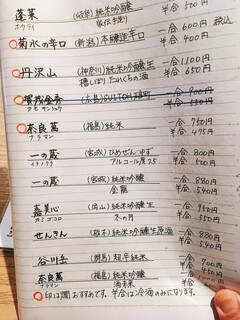 蓬莱 (岐阜) 純米吟醸 半合 500円
ホウライ 家伝手造り
○菊水の辛口 (新潟) 本醸造辛口 一合 700円 税込
半合 450円
○丹沢山 (神奈川) 純米吟醸生 一合 1100円
槽しぼりたれくちの酒 半合 650円
○賀茂金秀 (広島) 一合 900円
カモキンシュウ 半合 550円
○奈良萬 (福島) 純米 一合 750円
ナラマン 半合 475円
一の蔵 (宮城) ひめぜんゆず 一合 800円
イチノクラ アルコール度8.5 半合 500円
一の蔵 (宮城) 純米吟醸 一合 880円
金龍 半合 540円
嘉美心 (岡山) 純米吟醸生 一合 850円
カミゴコロ 冬の月 半合 550円
せんきん (栃木) 純米吟醸生原酒 一合 880円
半合 540円
谷川岳 (群馬) 超辛純米 一合 750円
奈良萬 (福島) 純米吟醸 一合
ナラマン 半合
○印は燗おすすめです。半合は冷酒のみになります。